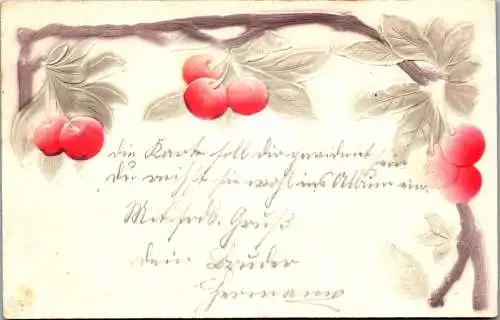 Die Karte soll dir gewidmet sein
du reihst sie wohl ins Album ein.
Mit frdl. Gruß
dein Bruder
Hermann